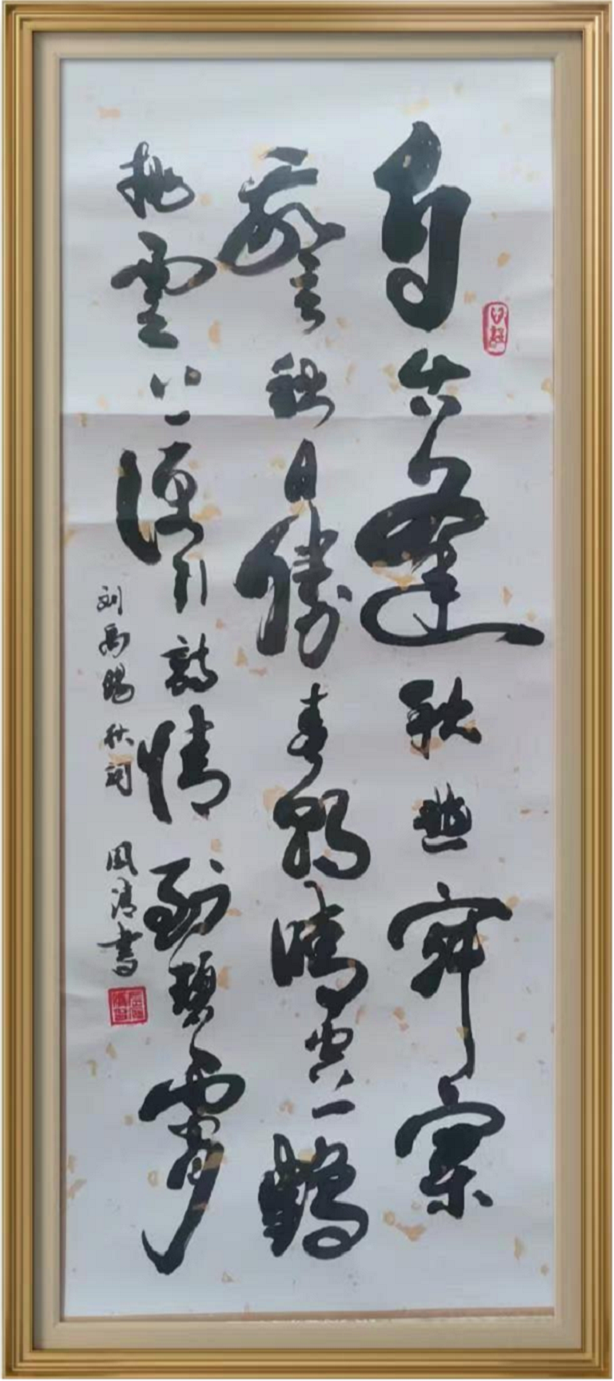 自古逢秋悲寂寥
我言秋日勝春朝晴空一鶴
排雲上便引詩情到碧霄
刘禹锡秋词 清書